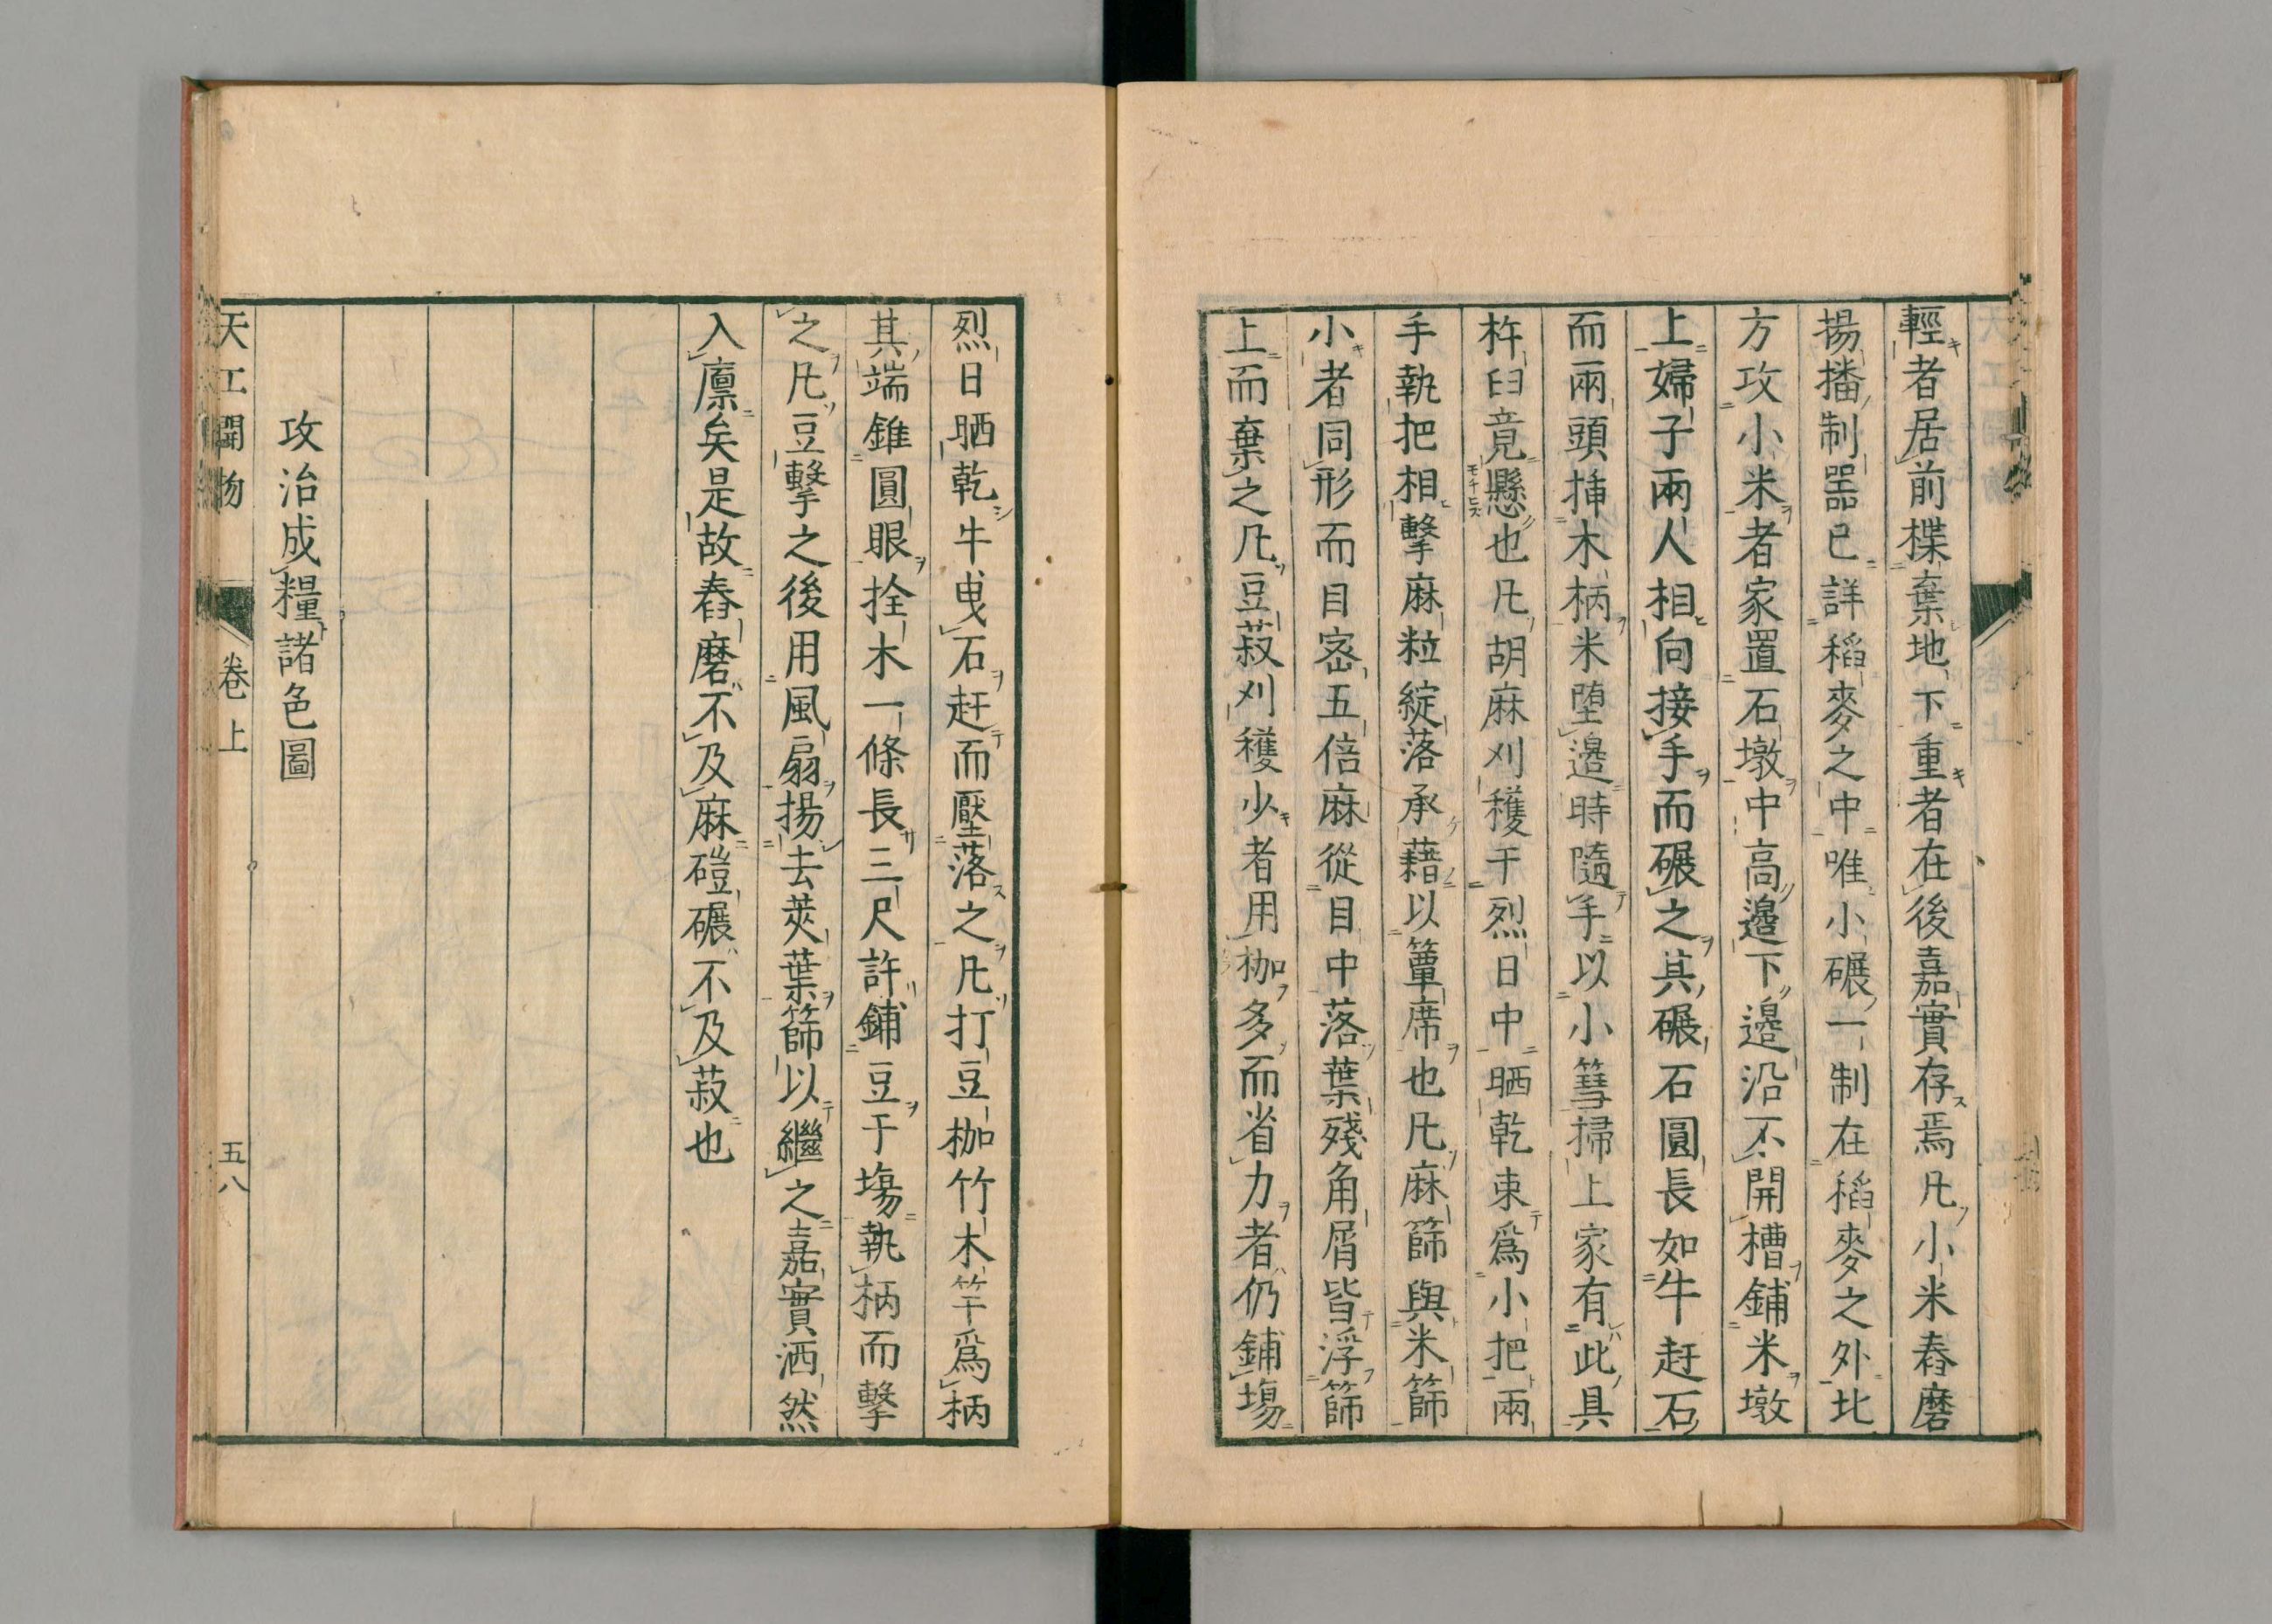 輕者居前楪棄地下重者在後嘉實存焉凡小米舂磨
揚播制器已詳稻麥之中唯小碾一制在稻麥之外北
方攻小米者家置石墩中高邊下邊沿不開槽鋪米墩
上婦子兩人相向接手而碾之其碾石圓長如牛赶石
而兩頭揷木柄米墮邊時隨手以小篲掃上家有此具
杵臼竟懸也凡胡麻刈穫于烈日中晒乾束爲小把兩
手執把相擊麻粒綻落承藉以簟席也凡麻篩與米篩
小者同形而目宻五倍麻從目中落葉殘角屑皆浮篩
上而棄之凡豆菽刈穫少者用枷多而省力者仍鋪塲
烈日晒乾牛曳石赶而壓落之凡打豆枷竹木竿爲柄
其端錐圓眼拴木一條長三尺許鋪豆于塲執柄而擊
之凡豆擊之後用風扇揚去莢葉篩以繼之嘉實洒然
入廩矣是故舂磨不及麻磑碾不及菽也
攻治成糧諸色圖
天工開物 卷上 五八